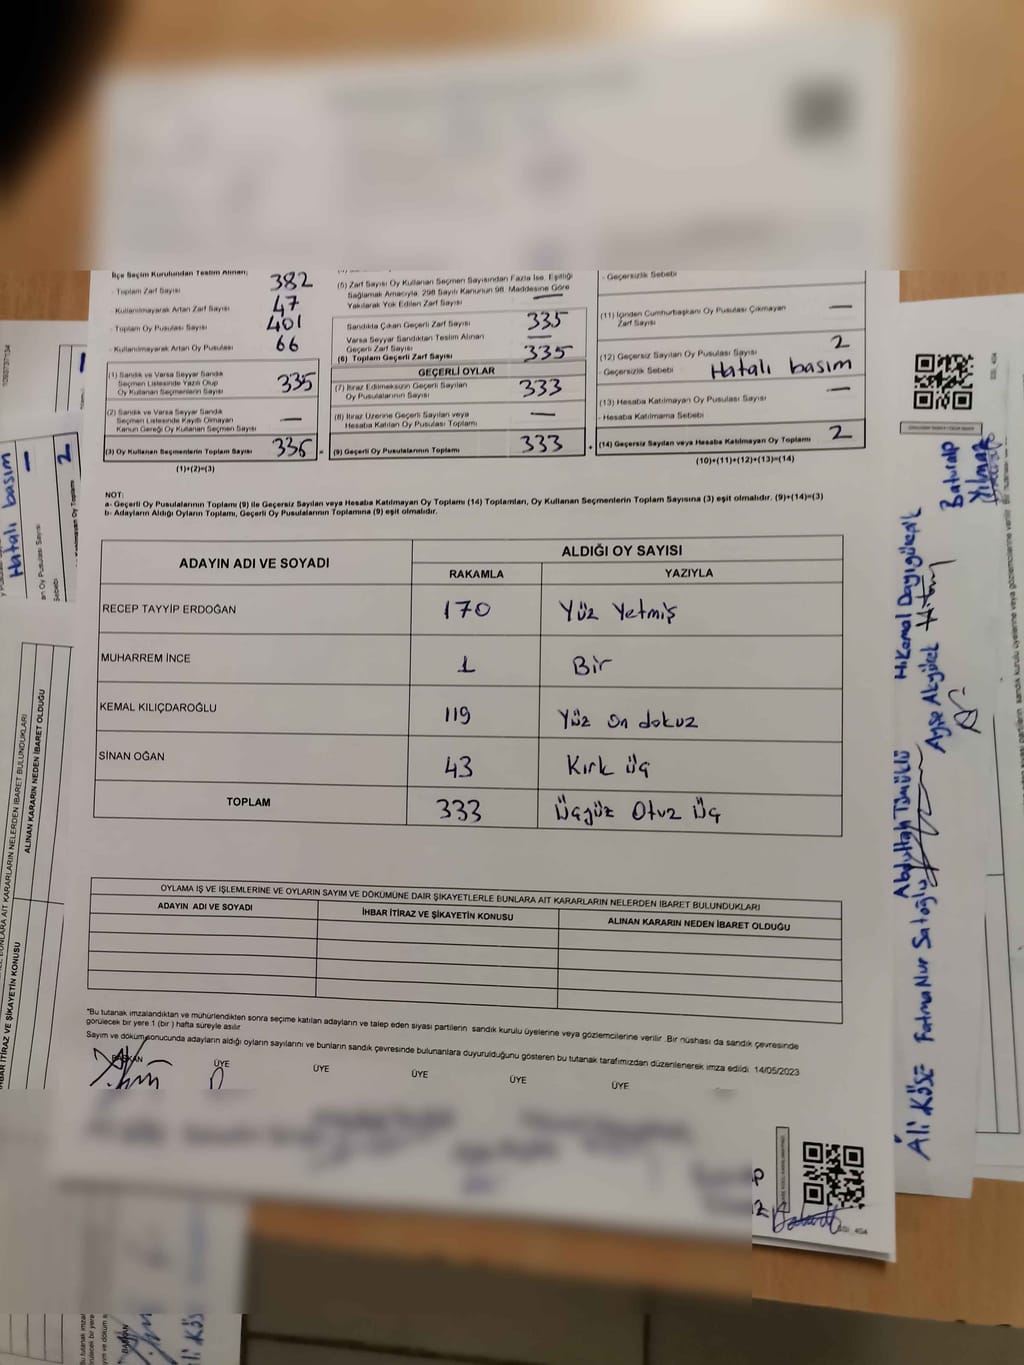 İlçe Seçim Kurulundan Teslim Alınan;
- Toplam Zarf Sayısı 382
- Kullanılmayarak Artan Zarf Sayısı 47
- Toplam Oy Pusulası Sayısı 401
- Kullanılmayarak Artan Oy Pusulası 66
(1) Sandık ve Varsa Seyyar Sandık
Seçmen Listesinde Yazılı Olup
Oy Kullanan Seçmenlerin Sayısı 335
(2) Sandık ve Varsa Seyyar Sandık
Seçmen Listesinde Kayıtlı Olmayan
Kanun Gereği Oy Kullanan Seçmen Sayısı —
(3) Oy Kullanan Seçmenlerin Toplam Sayısı 335
(1)+(2)=(3)
(5) Zarf Sayısı Oy Kullanan Seçmen Sayısından Fazla İse, Eşitliği
Sağlamak Amacıyla, 298 Sayılı Kanunun 98. Maddesine Göre
Yakılarak Yok Edilen Zarf Sayısı —
Sandıkta Çıkan Geçerli Zarf Sayısı 335
Varsa Seyyar Sandıktan Teslim Alınan
Geçerli Zarf Sayısı —
(6) Toplam Geçerli Zarf Sayısı 335
GEÇERLİ OYLAR
(7) İtiraz Edilmeksizin Geçerli Sayılan
Oy Pusulalarının Sayısı 333
(8) İtiraz Üzerine Geçerli Sayılan veya
Hesaba Katılan Oy Pusulası Toplamı —
(9) Geçerli Oy Pusulalarının Toplamı 333
- Geçersizlik Sebebi
(11) İçinden Cumhurbaşkanı Oy Pusulası Çıkmayan
Zarf Sayısı —
(12) Geçersiz Sayılan Oy Pusulası Sayısı 2
- Geçersizlik Sebebi Hatalı basım
(13) Hesaba Katılmayan Oy Pusulası Sayısı —
- Hesaba Katılmama Sebebi
(14) Geçersiz Sayılan veya Hesaba Katılmayan Oy Toplamı 2
(10)+(11)+(12)+(13)=(14)
NOT:
a- Geçerli Oy Pusulalarının Toplamı (9) ile Geçersiz Sayılan veya Hesaba Katılmayan Oy Toplamı (14) Toplamları, Oy Kullanan Seçmenlerin Toplam Sayısına (3) eşit olmalıdır. (9)+(14)=(3)
b- Adayların Aldığı Oyların Toplamı, Geçerli Oy Pusulalarının Toplamına (9) eşit olmalıdır.
ADAYIN ADI VE SOYADI ALDIĞI OY SAYISI
RAKAMLA YAZIYLA
RECEP TAYYİP ERDOĞAN 170 Yüz Yetmiş
MUHARREM İNCE 1 Bir
KEMAL KILIÇDAROĞLU 119 Yüz on dokuz
SİNAN OĞAN 43 Kırk üç
TOPLAM 333 Üçyüz Otuz Üç
OYLAMA İŞ VE İŞLEMLERİNE VE OYLARIN SAYIM VE DÖKÜMÜNE DAİR ŞİKAYETLERLE BUNLARA AİT KARARLARIN NELERDEN İBARET BULUNDUKLARI
ADAYIN ADI VE SOYADI İHBAR İTİRAZ VE ŞİKAYETİN KONUSU ALINAN KARARIN NEDEN İBARET OLDUĞU
*Bu tutanak imzalandıktan ve mühürlendikten sonra seçime katılan adayların ve talep eden siyasi partilerin sandık kurulu üyelerine veya gözlemcilerine verilir. Bir nüshası da sandık çevresinde
görülecek bir yere 1 (bir) hafta süreyle asılır.
Sayım ve döküm sonucunda adayların aldığı oyların sayılarını ve bunların sandık çevresinde bulunanlara duyurulduğunu gösteren bu tutanak tarafımızdan düzenlenerek imza edildi. 14/05/2023
BAŞKAN ÜYE ÜYE ÜYE ÜYE ÜYE
Hatalı basım
2
ALINAN KARARIN NEDEN İBARET OLDUĞU
İTİRAZ VE ŞİKAYETİN KONUSU
Baturalp
Yılmaz
H.Kemal
Ayşe Akgülek
Abdullah
Fatma Nur Satoğlu
Ali KÖSE
BAŞKAN